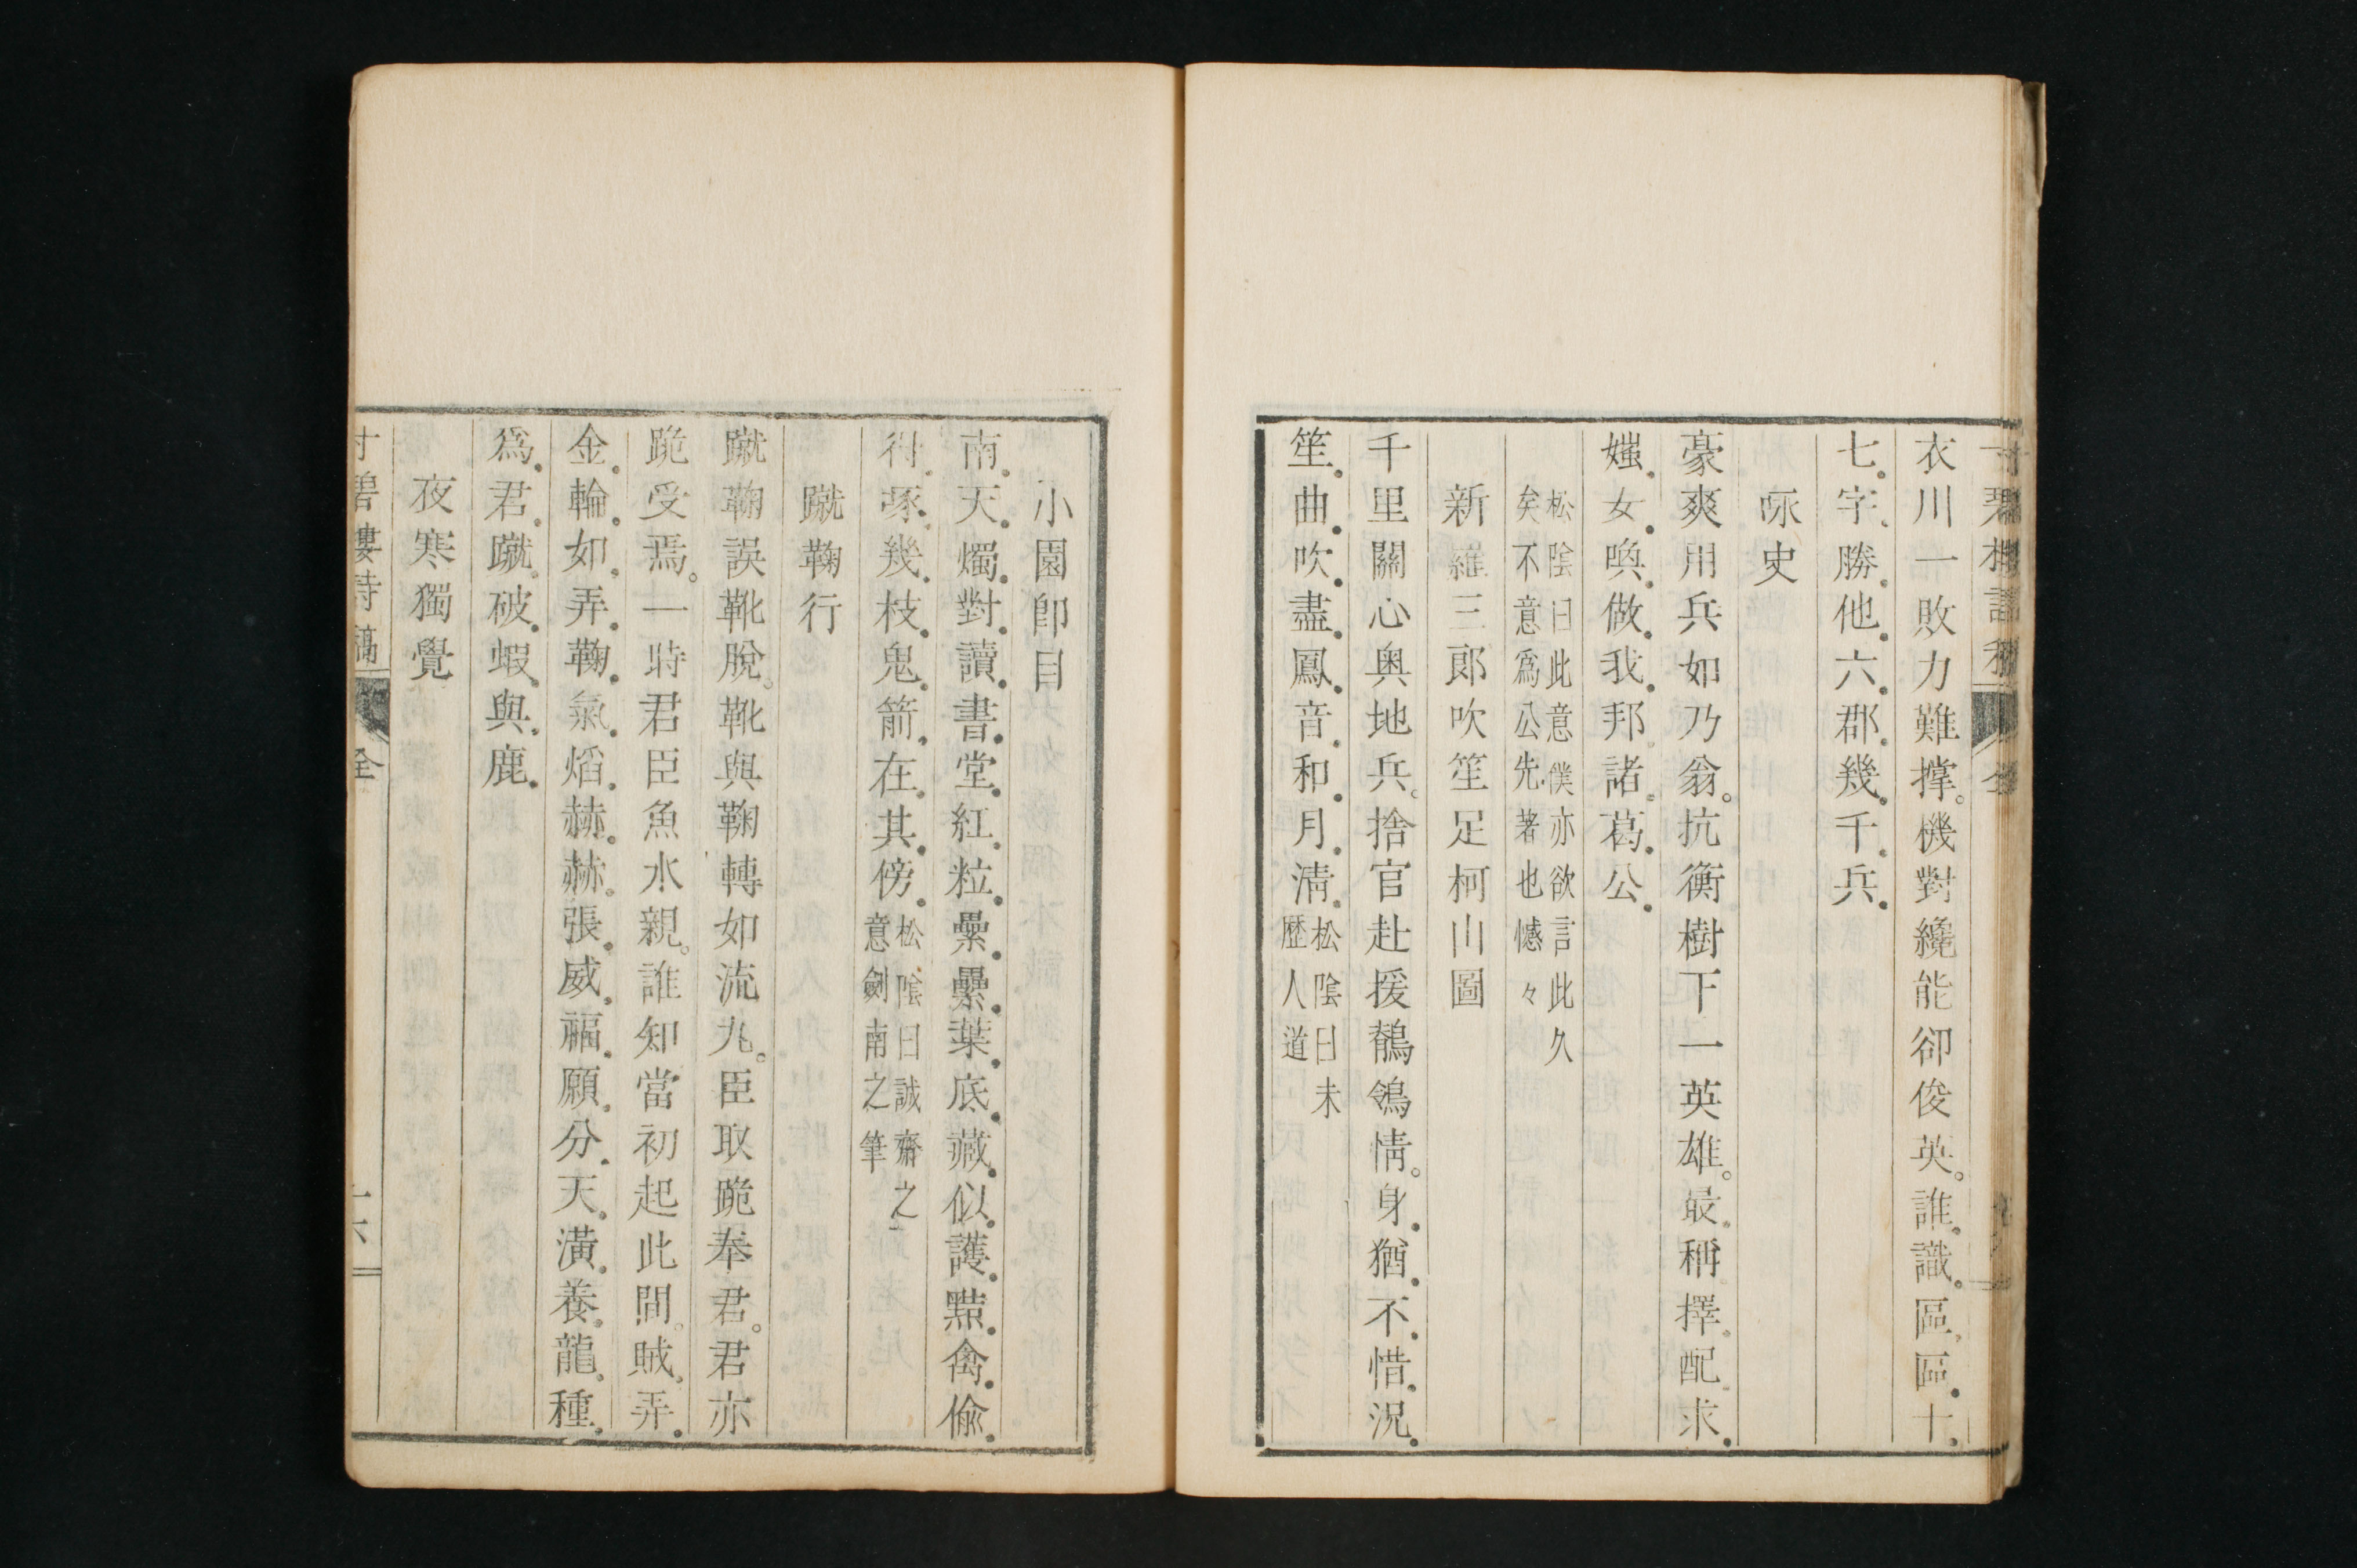 寸碧樓詩稿 全
衣川一敗力難撑。機對纔能卻俊英。誰識區區十
七字勝他六郡幾千兵
咏史
豪爽用兵如乃翁。抗衡樹下一英雄。最稱擇配求
媸女喚做我邦諸葛公
松陰曰此意僕亦欲言此久
矣不意爲公先著也憾々
新羅三郎吹笙足柯山圖
千里關心奥地兵。捨官赴援鶺鴒情。身猶不惜況
笙曲吹盡鳳音和月清
松陰曰未
歷人道
小園即目
南天燭對讀書堂紅粒纍纍葉底藏似護黠禽偸
得啄幾枝鬼箭在其傍
松陰曰誠齋之
意劍南之筆
蹴鞠行
蹴鞠誤靴脫。靴與鞠轉如流丸。臣取跪奉君。君亦
跪受焉。一時君臣魚水親。誰知當初起此間。賊弄
金輪如弄鞠氣焰赫赫張威福願分天潢養龍種
爲君蹴破蝦與鹿
夜寒獨覺
寸碧樓詩稿 全 十六